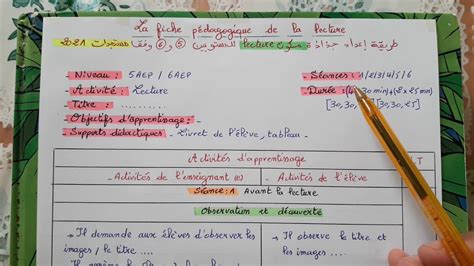 La fiche pédagogique de la lecture
طريقة إعداد جذاذة مكون lecture للمستويين 5 و 6 وفق مستجدات 2021
- Niveau : 5AEP / 6AEP
- Séances : 1/2/3/4/5/6
- Activité : Lecture
- Durée : (4 30 min) + (2 x 25 min)
- Titre : ....
[30, 30, [30, 30, 25]
- Objectifs d'apprentissage :
- Supports didactiques : - Livret de l'élève, tableau -
Activités d'apprentissage
- Activités de l'enseignant (e)
- Activités de l'élève
T
Séance : 1 Avant la lecture
Observation et découverte
- Il demande aux élèves d'observer les
- Il observe le titre et
images / le titre ....
les images ....